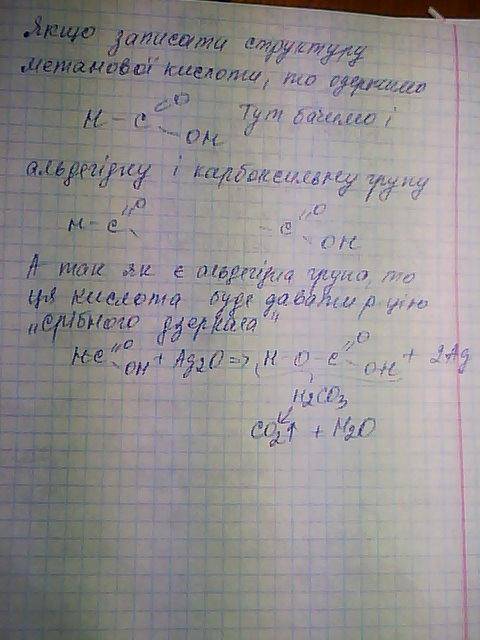 Якщо записати структуру
метанової кислоти, то одержимо
H - C =O - OH Тут бачимо і
альдегідну і карбоксильну групу
H - C =O - C =O OH
А так як є альдегідна група, то
ця кислота буде давати р-цію
„срібного дзеркала"
H-C =O OH + Ag2O => (H - O - C =O OH + 2Ag
H2CO3
CO2↑ + H2O